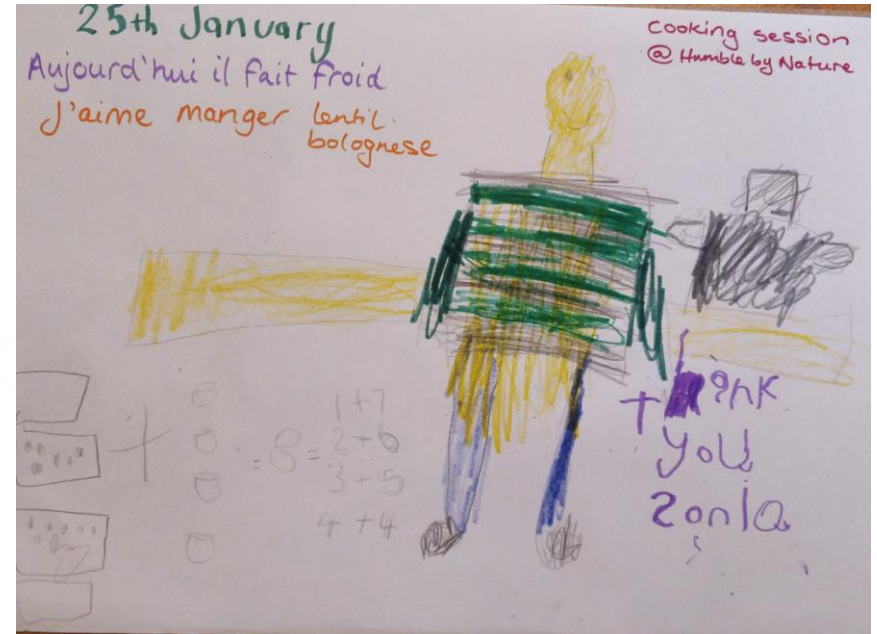 25th January
Aujourd'hui il fait froid
J'aime manger lentil
bolognese
Cooking session
@ Humble by Nature
= 8 =
1+7
2+6
3+5
4+4
you